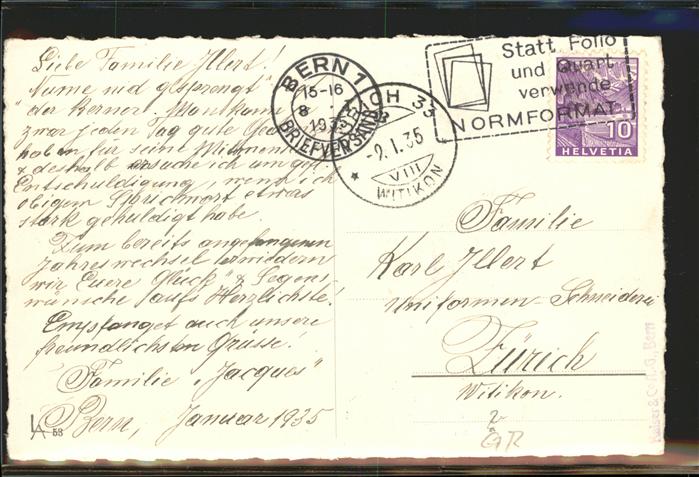 Liebe Familie Illert!
"Nume nid gsprengt"
der Berner
zwar jeden Tag gute
haben für seine
& deshalb ersuche ich um gütige
Entschuldigung, wenn ich
obigem Sprichwort etwas
stark gehuldigt habe.
Zum bereits angefangenen
Jahreswechsel erwiedern
wir Euere "Glück" & Segens
wünsche aufs Herzlichste!
Empfanget auch unsere
freundlichsten Grüsse!
Familie "Jacques"
Bern, Januar 1935
58
BERN 1
15-16
8
BRIEFVERSAND
CH 33
-9.1.35
VIII
* WITIKON
Statt Folio
und Quart
verwende
NORMFORMAT
10
HELVETIA
Familie
Karl Illert
Uniformen-Schneiderei
Zürich
Witikon.
Kaiser & Co. A.G., Bern